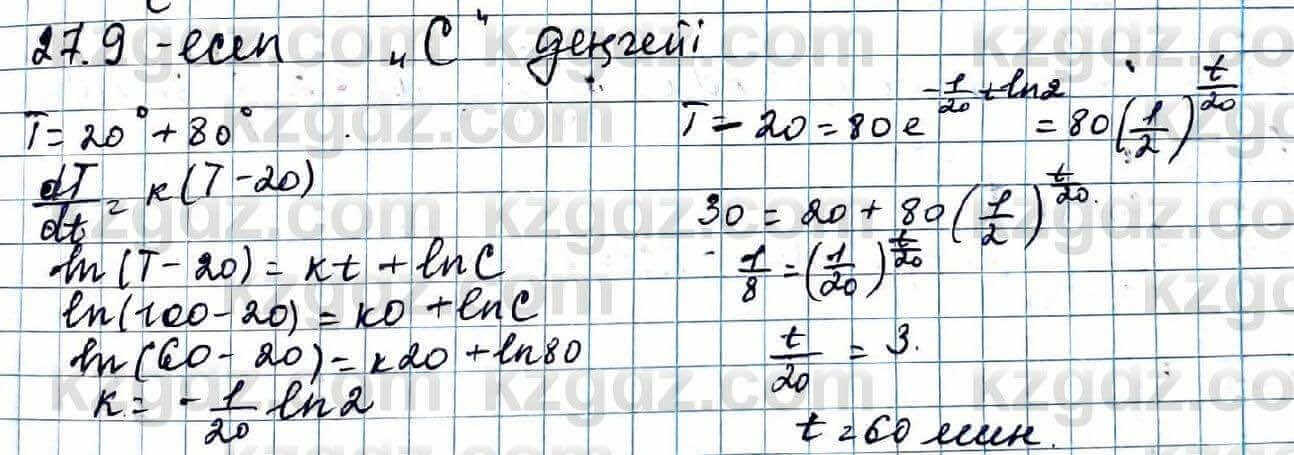 27.9 -есеп „С“ деңгейі
T = 20° + 80°
dT/dt = к(T - 20)
ln(T - 20) = кt + lnC
ln(100 - 20) = к0 + lnC
ln(60 - 20) = к20 + ln80
к = - 1/20 ln2
T - 20 = 80 e^(-1/20 t ln2) = 80(1/2)^(t/20)
30 = 20 + 80(1/2)^(t/20).
1/8 = (1/20)^(t/20)
t/20 = 3.
t = 60 мин.
kzgdz.com